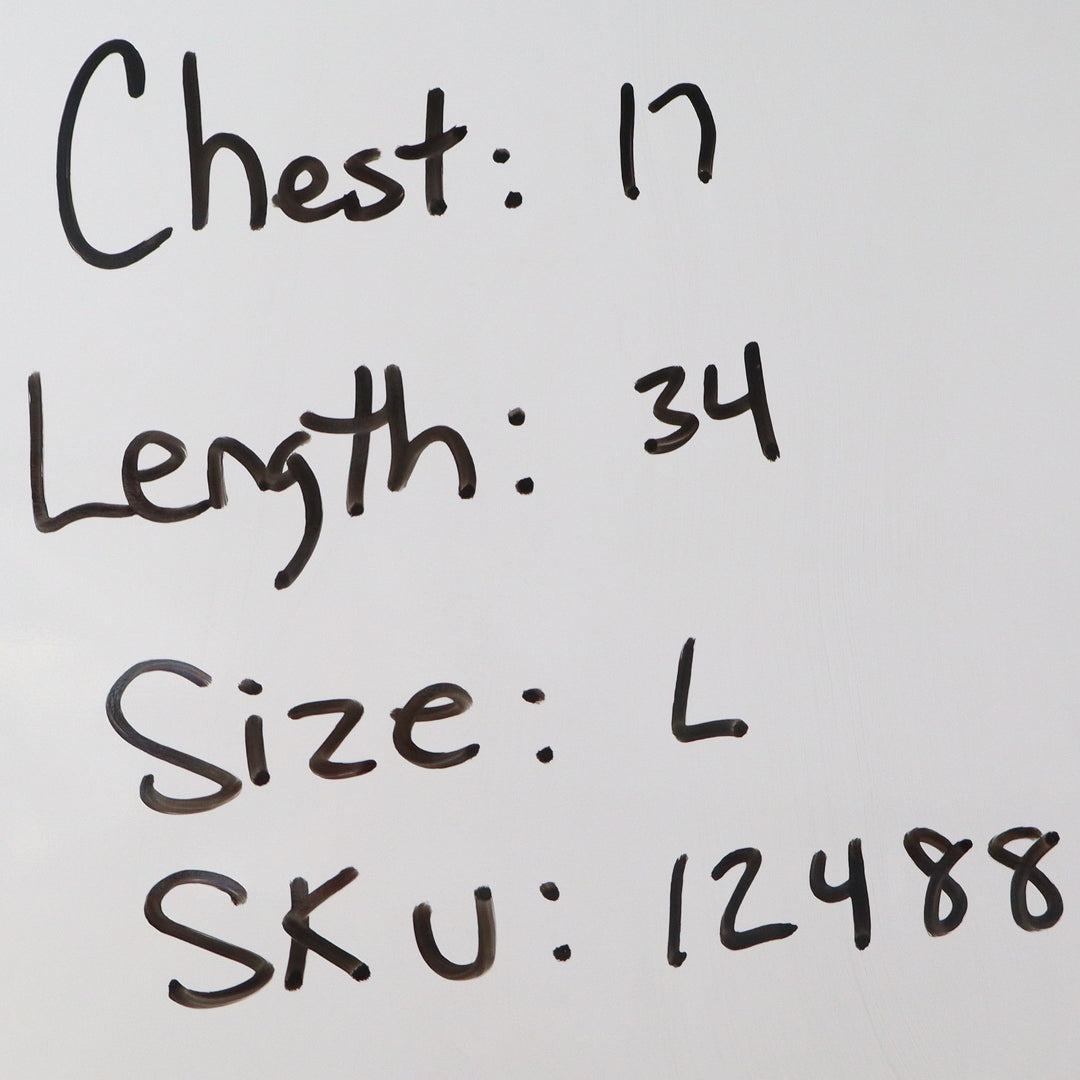 Chest: 17
Length: 34
Size: L
SKU: 12488